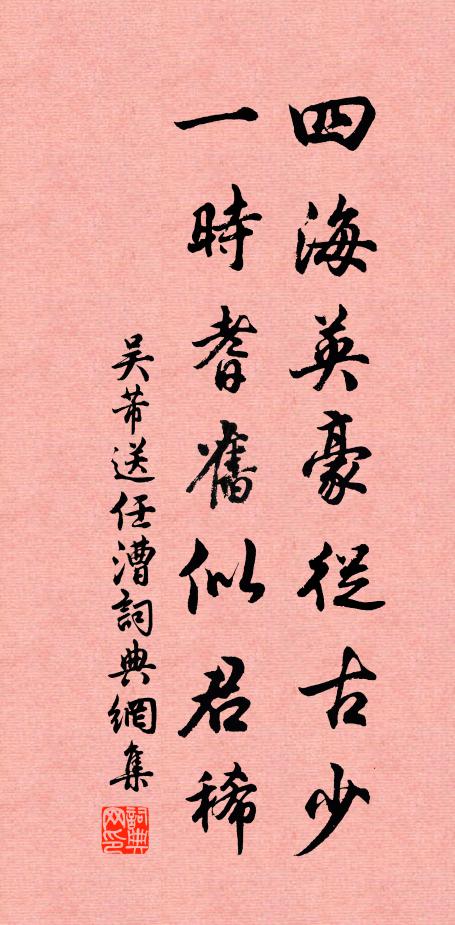 四海英豪從古少
一時耆舊似君稀
吴芾送任漕詞典網集
詞典网印